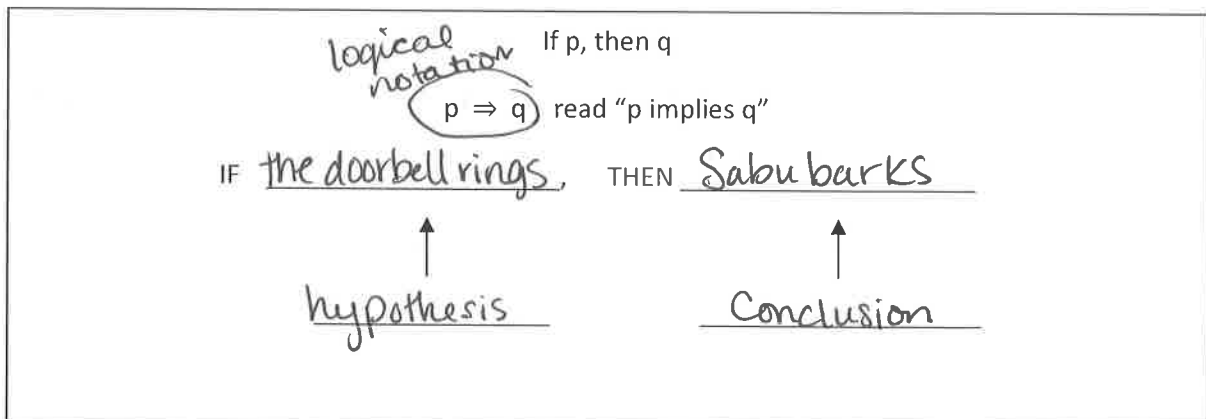 logical
notation
If p, then q
p ⇒ q read "p implies q"
IF the doorbell rings, THEN Sabu barks
hypothesis Conclusion